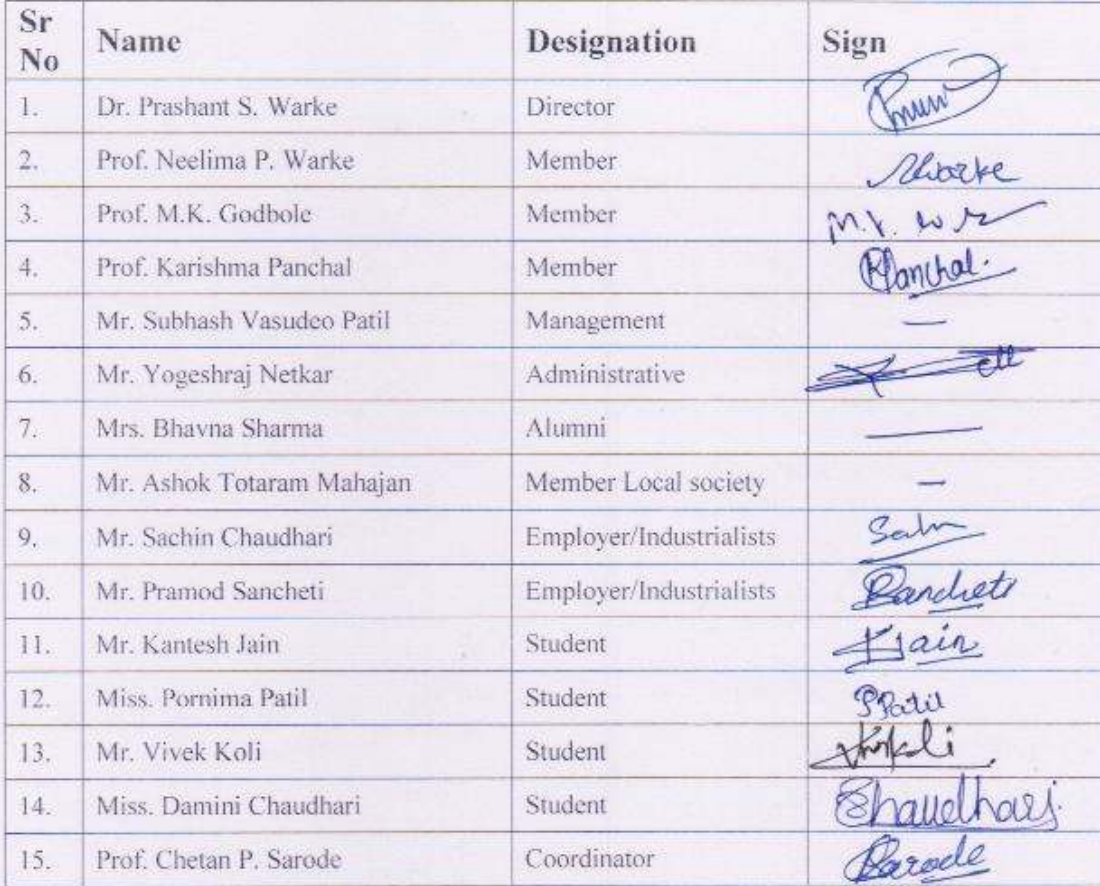 Sr No Name Designation Sign
1. Dr. Prashant S. Warke Director
2. Prof. Neelima P. Warke Member NWarke
3. Prof. M.K. Godbole Member
4. Prof. Karishma Panchal Member KPanchal.
5. Mr. Subhash Vasudeo Patil Management —
6. Mr. Yogeshraj Netkar Administrative
7. Mrs. Bhavna Sharma Alumni —
8. Mr. Ashok Totaram Mahajan Member Local society —
9. Mr. Sachin Chaudhari Employer/Industrialists
10. Mr. Pramod Sancheti Employer/Industrialists
11. Mr. Kantesh Jain Student KJain
12. Miss. Pornima Patil Student PPatil
13. Mr. Vivek Koli Student
14. Miss. Damini Chaudhari Student
15. Prof. Chetan P. Sarode Coordinator